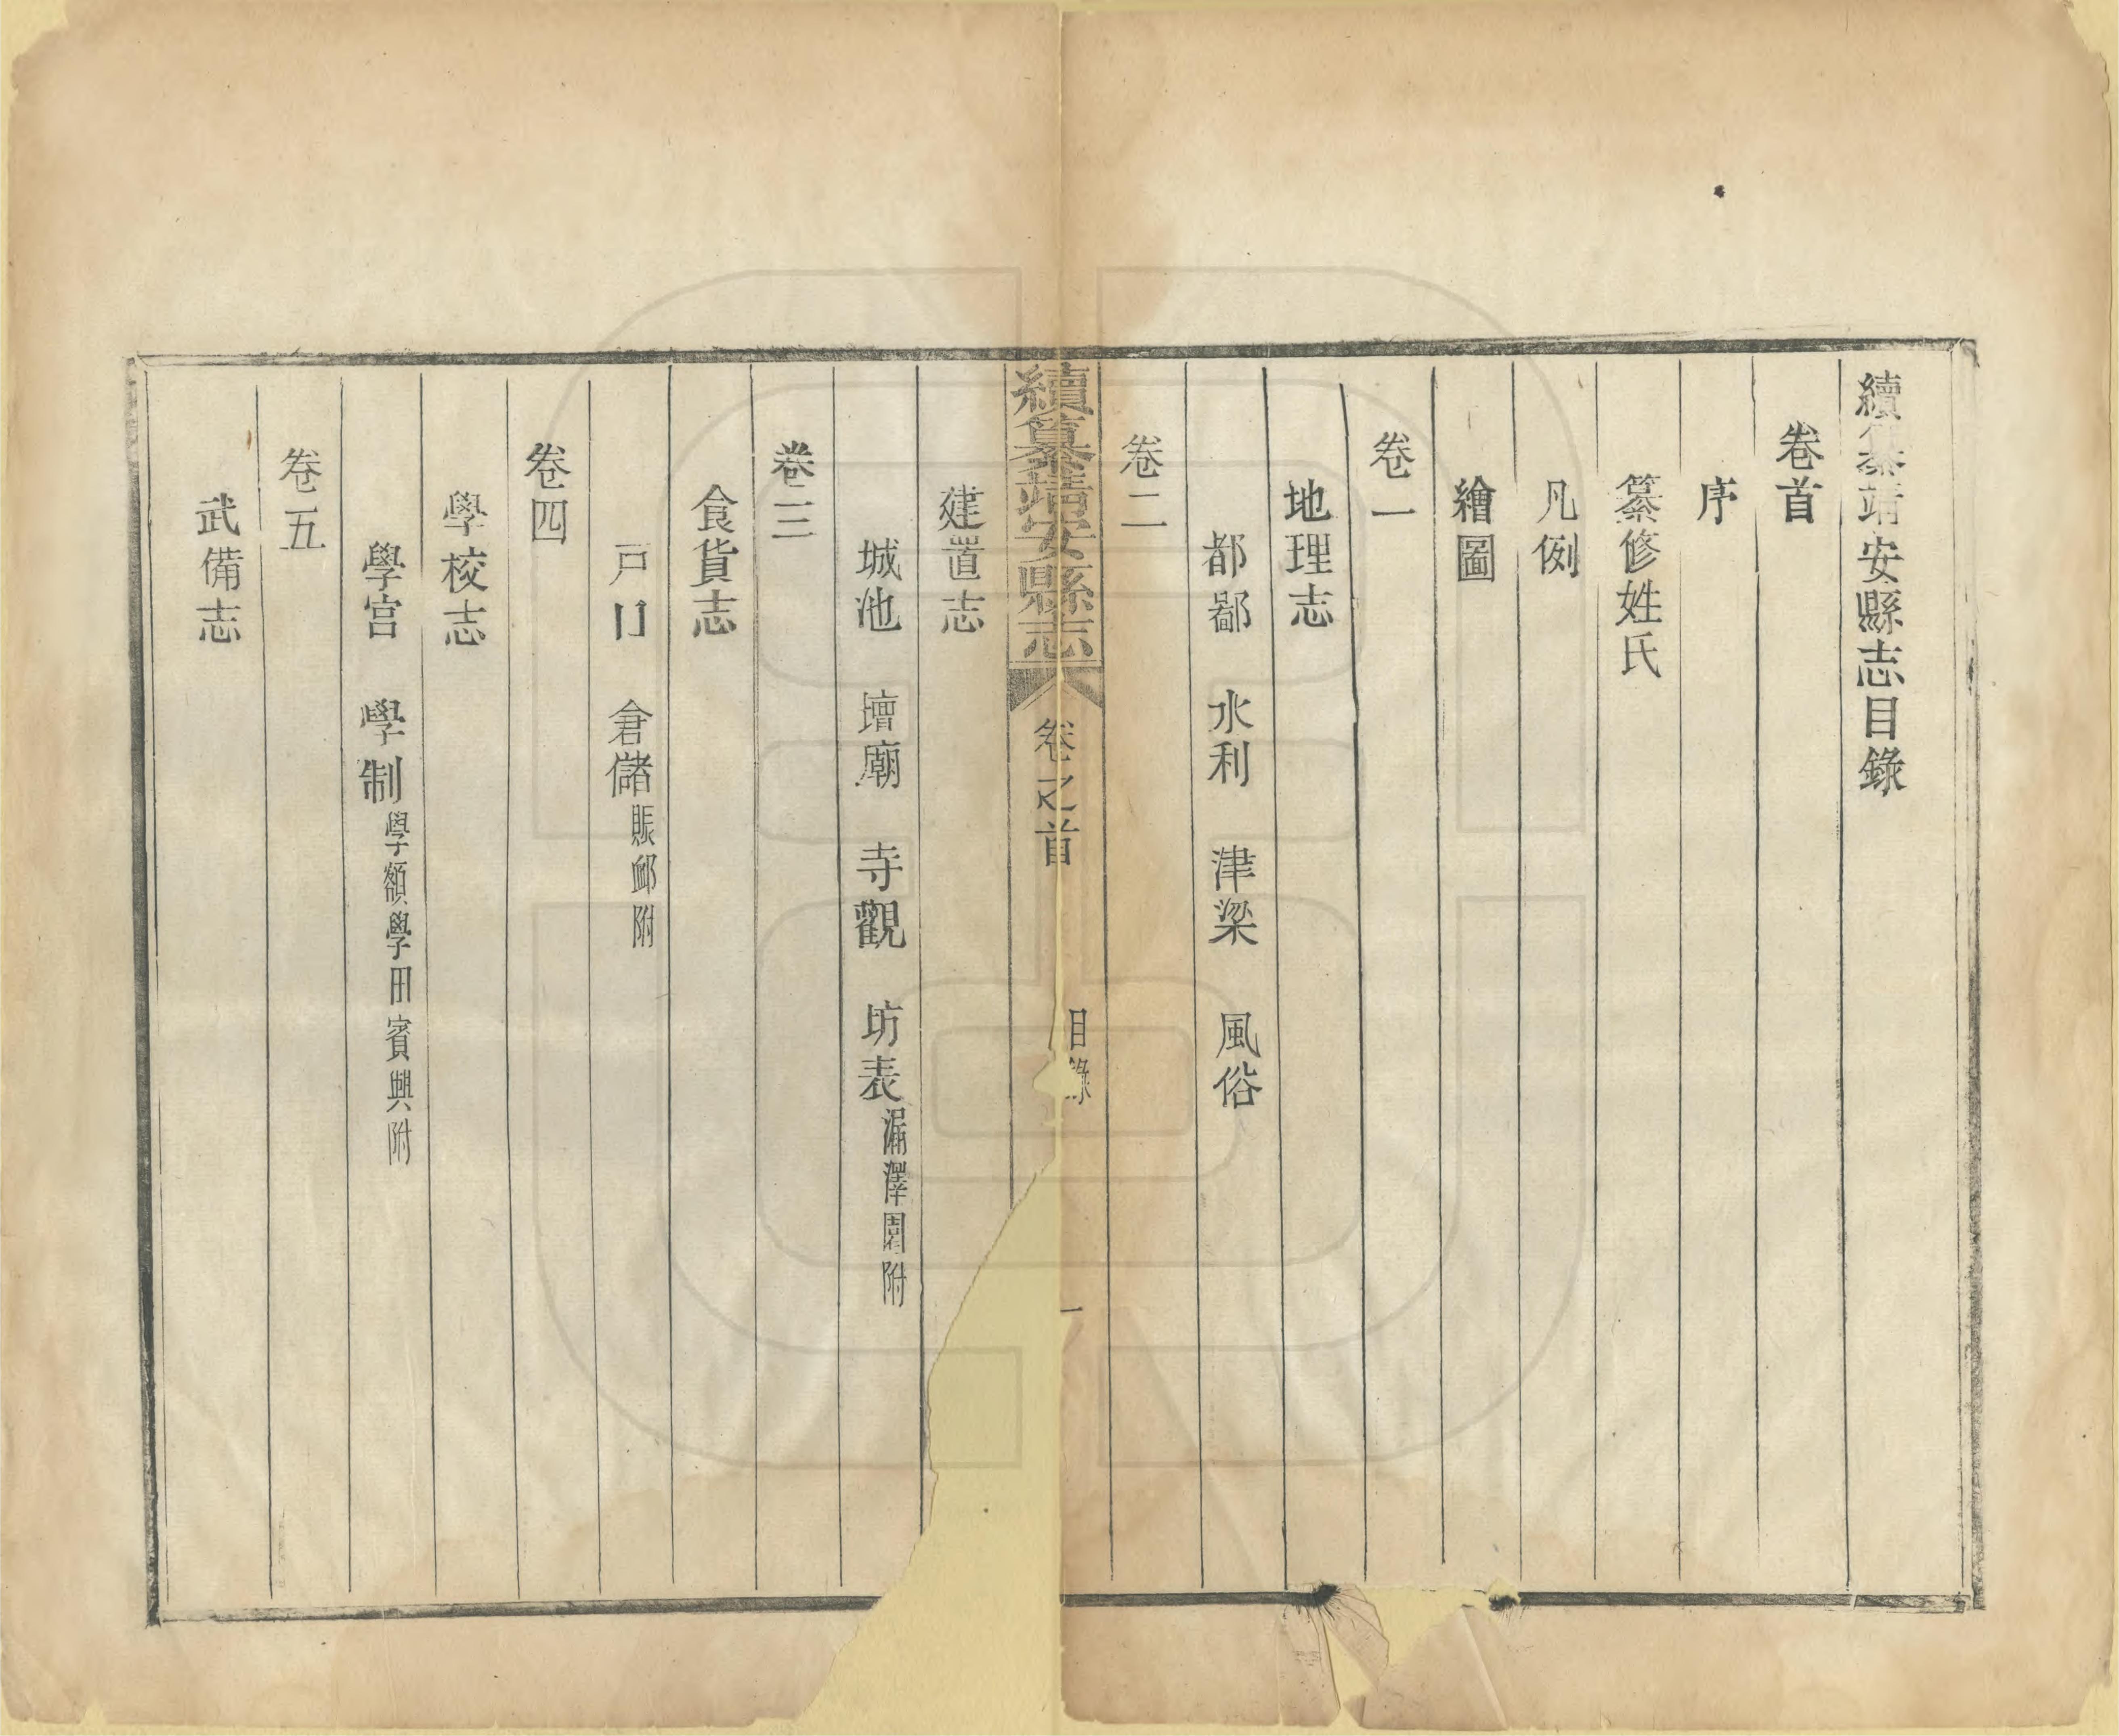 續纂靖安縣志目錄
卷首
序
纂修姓氏
凡例
繪圖
卷一
地理志
都鄙　水利　津梁　風俗
卷二
續纂靖安縣志　卷之首　目錄　一
建置志
城池　壇廟　寺觀　坊表漏澤園附
卷三
食貨志
戸口　倉儲賑䘏附
卷四
學校志
學宮　學制學額學田賓興附
卷五
武備志